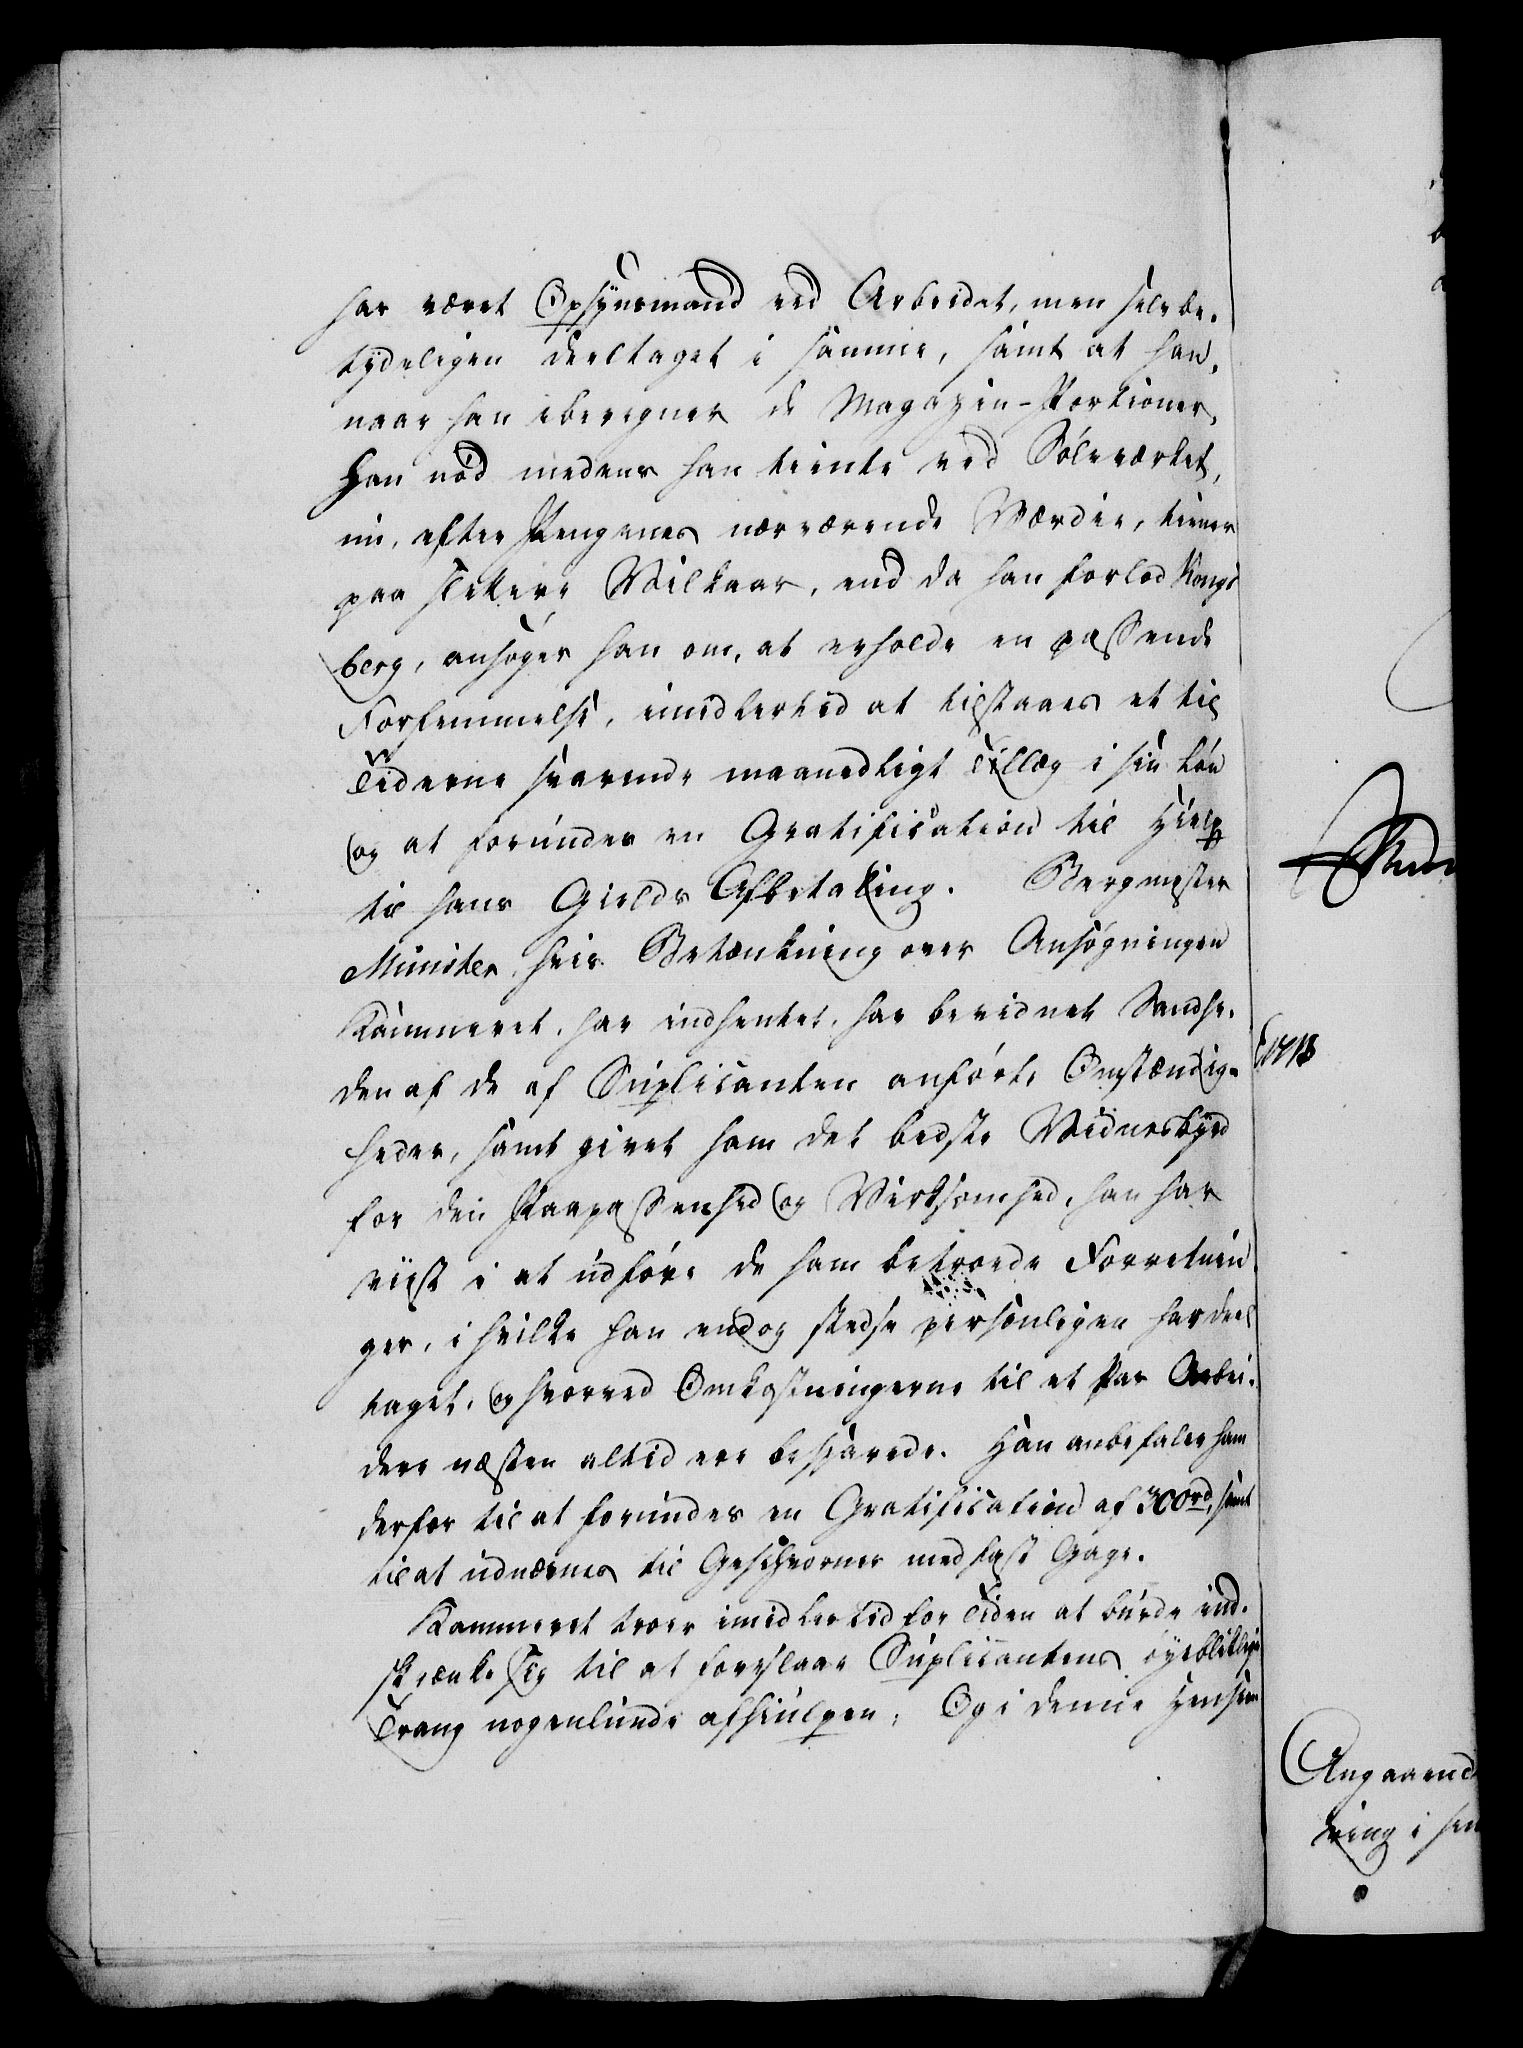 har været Opsynsmand ved Arbeidet, men selv be-
tydeligen deeltaget i samme, samt at han,
naar han iberegner de Magazin-Portioner,
Han nød medens han tiente ved Sølvværket,
nu, efter Pengenes nærværende Værdie, tiener
paa slettere Vilkaar, end da han forlod Kongs
berg, ansøger han om, at erholde en passende
Forfremmelse, imidlertid at tilstaaes et til
Tiderne svarende maanedligt Tillæg i sin Løn
og at forundes en Gratification til Hielp
til hans Gields Afbetaling. Bergmester
Münster, hvis Betænkning over Ansøgningen
Kammeret har indhentet, har bevidnet Sandhe-
den af de af Suplicanten anførte Omstændig-
heder, samt givet ham det bedste Vidnesbyrd
for den Paapassenhed og Virksomhed, han har
viist i at udføre de ham betroede Forretnin
ger, i hvilke han endog stedse personligen har deel
taget, og hvorved Omkostningerne til et Par Arbei-
dere næsten altid ere besparede. Han anbefaler ham
derfor til at forundes en Gratification af 300 rd, samt
til at udnævnes til Geschworner med fast Gage.
Kammeret troer imidlertid for Tiden at burde ind-
skrænke sig til at foreslaae Suplicantens øyeblikkelige
Trang nogenlunde afhiulpen; Og i denne Hensigt
Angaaend
dring i